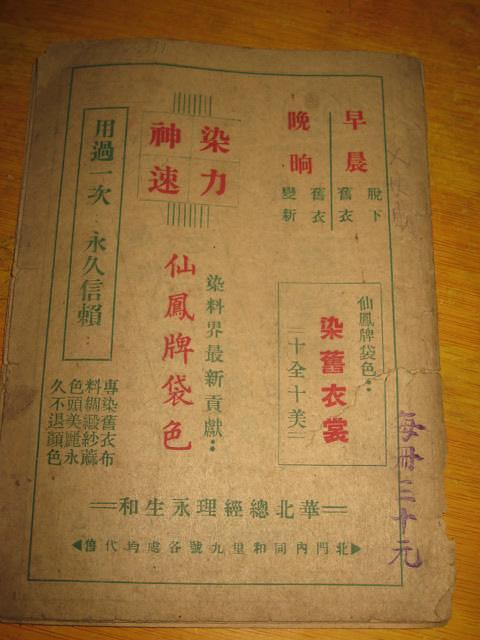 早晨
脫下
舊衣
晚晌
舊衣
變新
染力
神速
仙鳳牌袋色:
染舊衣裳
十全十美
染料界最新貢獻:
仙鳳牌袋色
用過一次 永久信賴
專染舊衣布
料綢緞紗蔴
色頭美麗永
久不退顏色
華北總經理永生和
北門內同和里九號各處均代售
每冊三十元